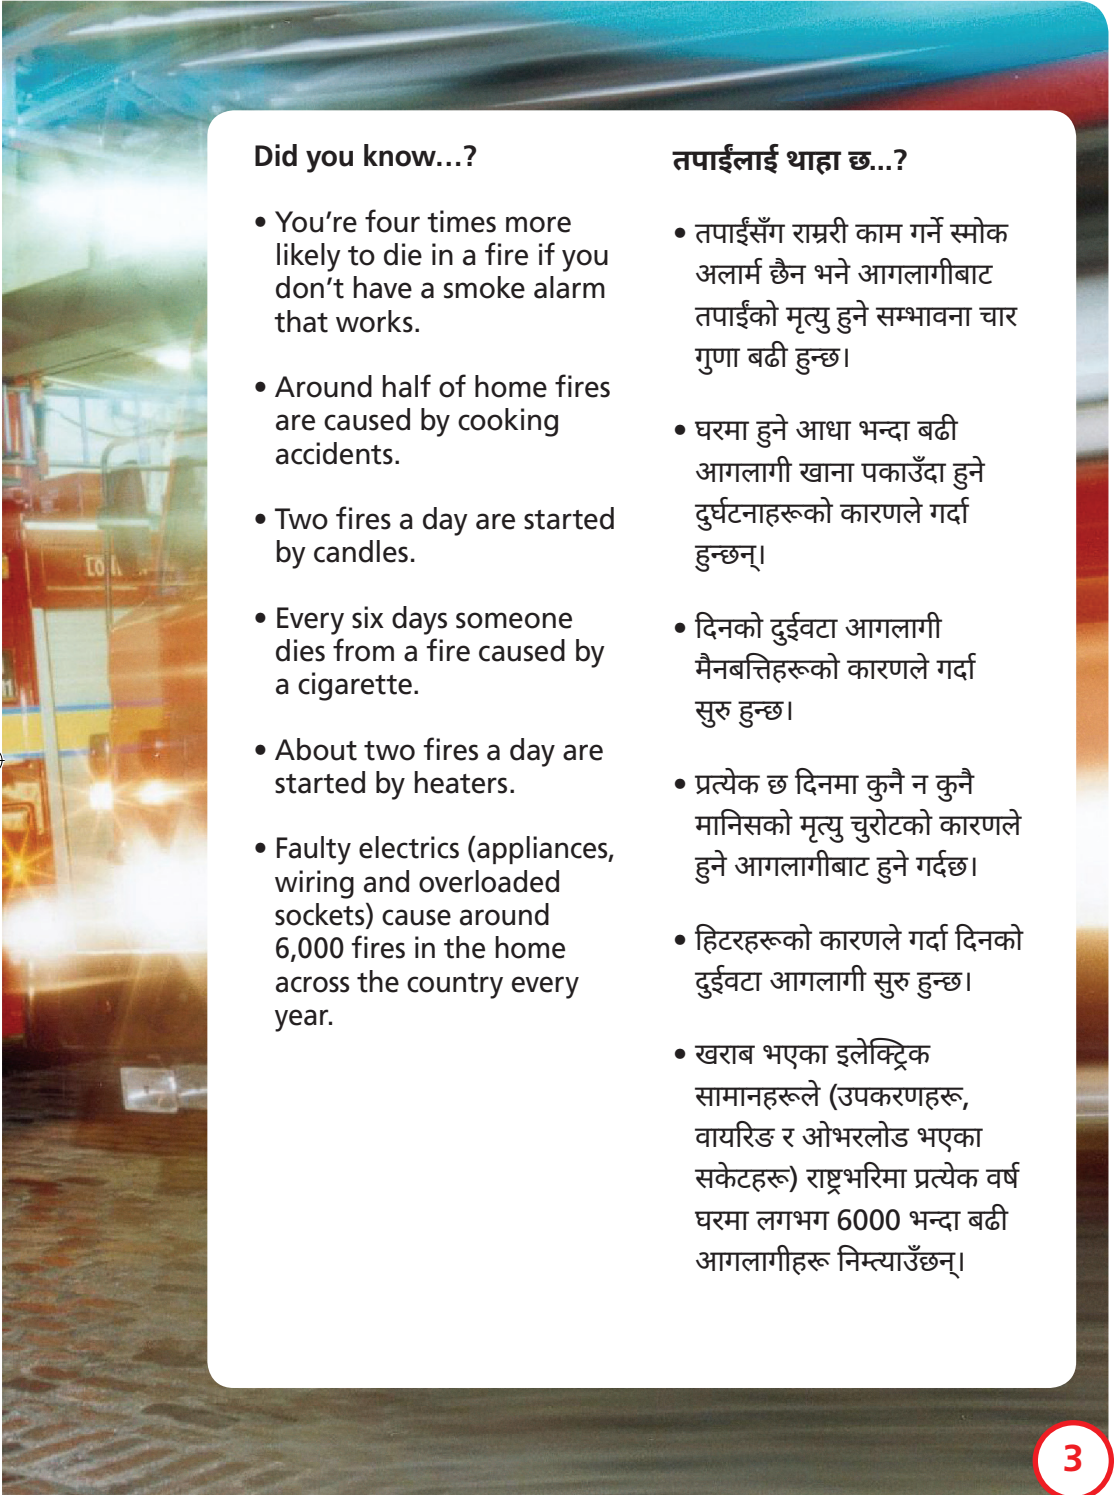 Did you know...?
• You're four times more
likely to die in a fire if you
don't have a smoke alarm
that works.
• Around half of home fires
are caused by cooking
accidents.
• Two fires a day are started
by candles.
• Every six days someone
dies from a fire caused by
a cigarette.
• About two fires a day are
started by heaters.
• Faulty electrics (appliances,
wiring and overloaded
sockets) cause around
6,000 fires in the home
across the country every
year.
तपाईंलाई थाहा छ...?
• तपाईंसँग राम्ररी काम गर्ने स्मोक
अलार्म छैन भने आगलागीबाट
तपाईंको मृत्यु हुने सम्भावना चार
गुणा बढी हुन्छ।
• घरमा हुने आधा भन्दा बढी
आगलागी खाना पकाउँदा हुने
दुर्घटनाहरूको कारणले गर्दा
हुन्छन्।
• दिनको दुईवटा आगलागी
मैनबत्तिहरूको कारणले गर्दा
सुरु हुन्छ।
• प्रत्येक छ दिनमा कुनै न कुनै
मानिसको मृत्यु चुरोटको कारणले
हुने आगलागीबाट हुने गर्दछ।
• हिटरहरूको कारणले गर्दा दिनको
दुईवटा आगलागी सुरु हुन्छ।
• खराब भएका इलेक्ट्रिक
सामानहरूले (उपकरणहरू,
वायरिङ र ओभरलोड भएका
सकेटहरू) राष्ट्रभरिमा प्रत्येक वर्ष
घरमा लगभग 6000 भन्दा बढी
आगलागीहरू निम्त्याउँछन्।
3